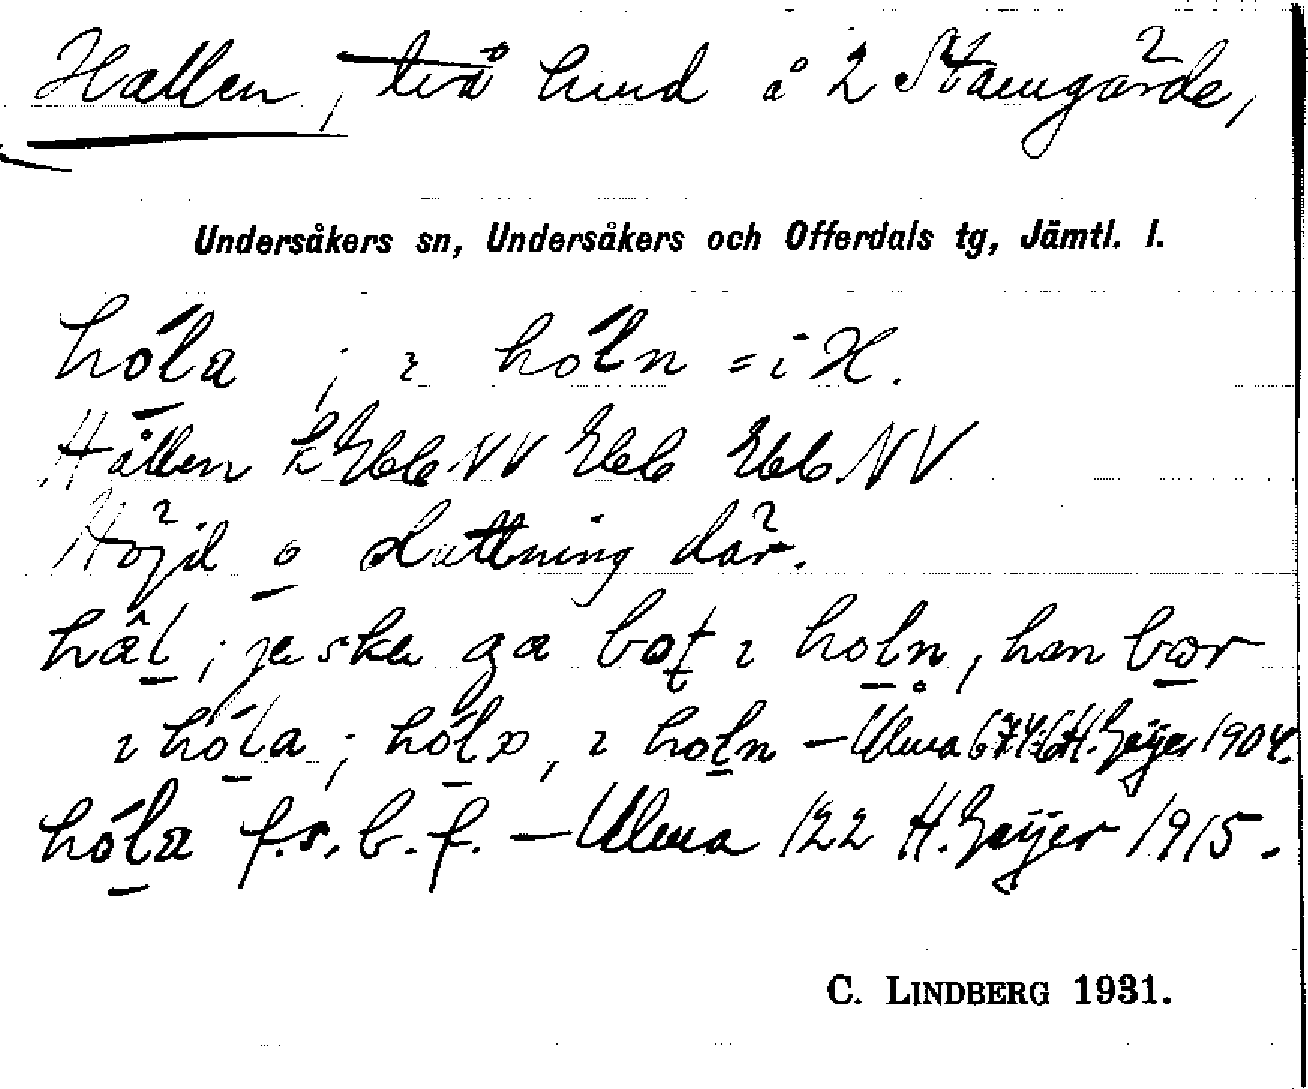 Hallen, två hmd å 2 Stamgärde,
Undersåkers sn, Undersåkers och Offerdals tg, Jämtl. l.
hóla ; ı hóln = i H.
Hållen k Ebb NV Ebb Ebb NV
Höjd o sluttning där.
hâl ; ja ska ga bot ı holn, han bor
ı hóla ; hóla, ı holn – Ulma H. Geijer 1904.
hóla f.s.b.f. – Ulma 122 H. Geijer 1915.
C. LINDBERG 1931.